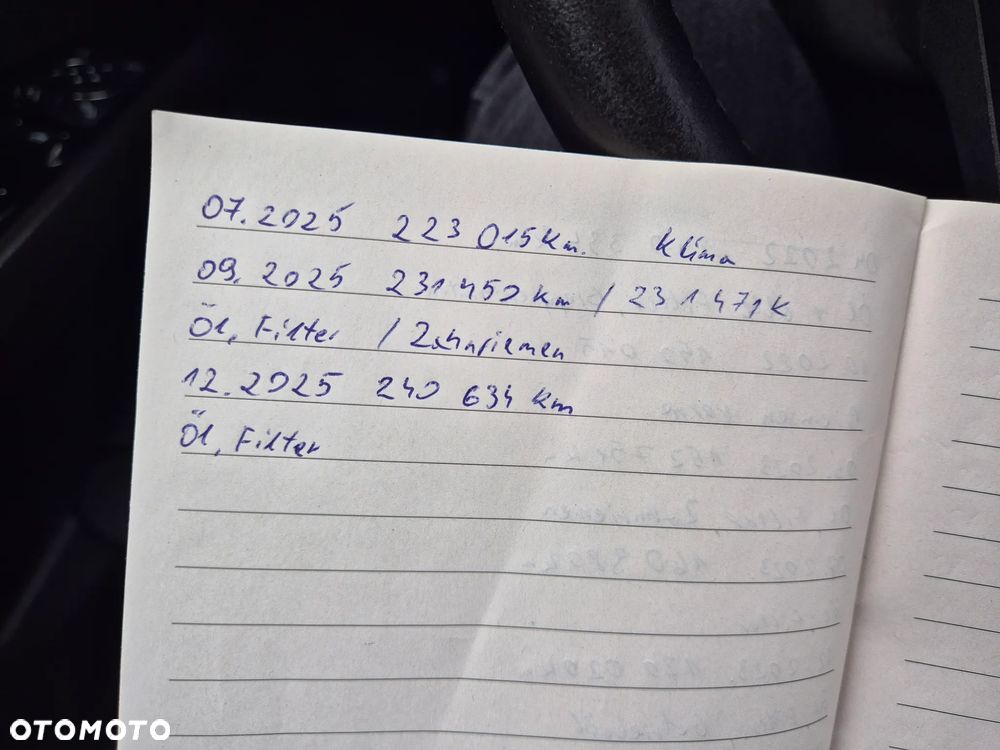 07.2025 223 015 Km. Klima
09.2025 231 450 km / 231 471 K
Öl, Filter / Zahnriemen
12.2025 240 634 km
Öl, Filter
OTOMOTO